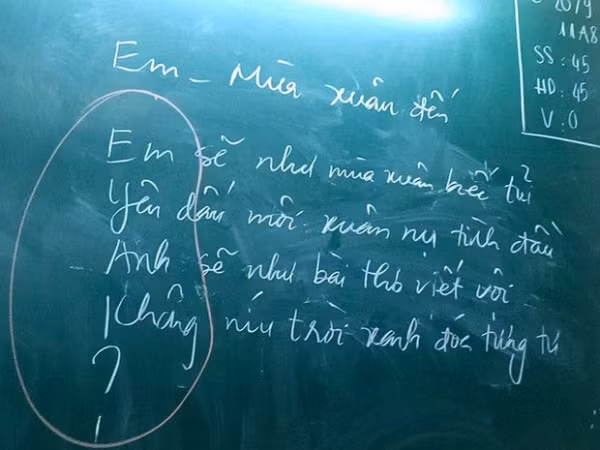 2019
11A8
SS: 45
HD: 45
V: 0
Em - Mùa xuân đến
Em sẽ như mùa xuân biếc tủi
Yên dấu môi xuân nụ tình đầu
Anh sẽ như bài thơ viết vội
Không níu trời xanh đóa từng tư
?
!